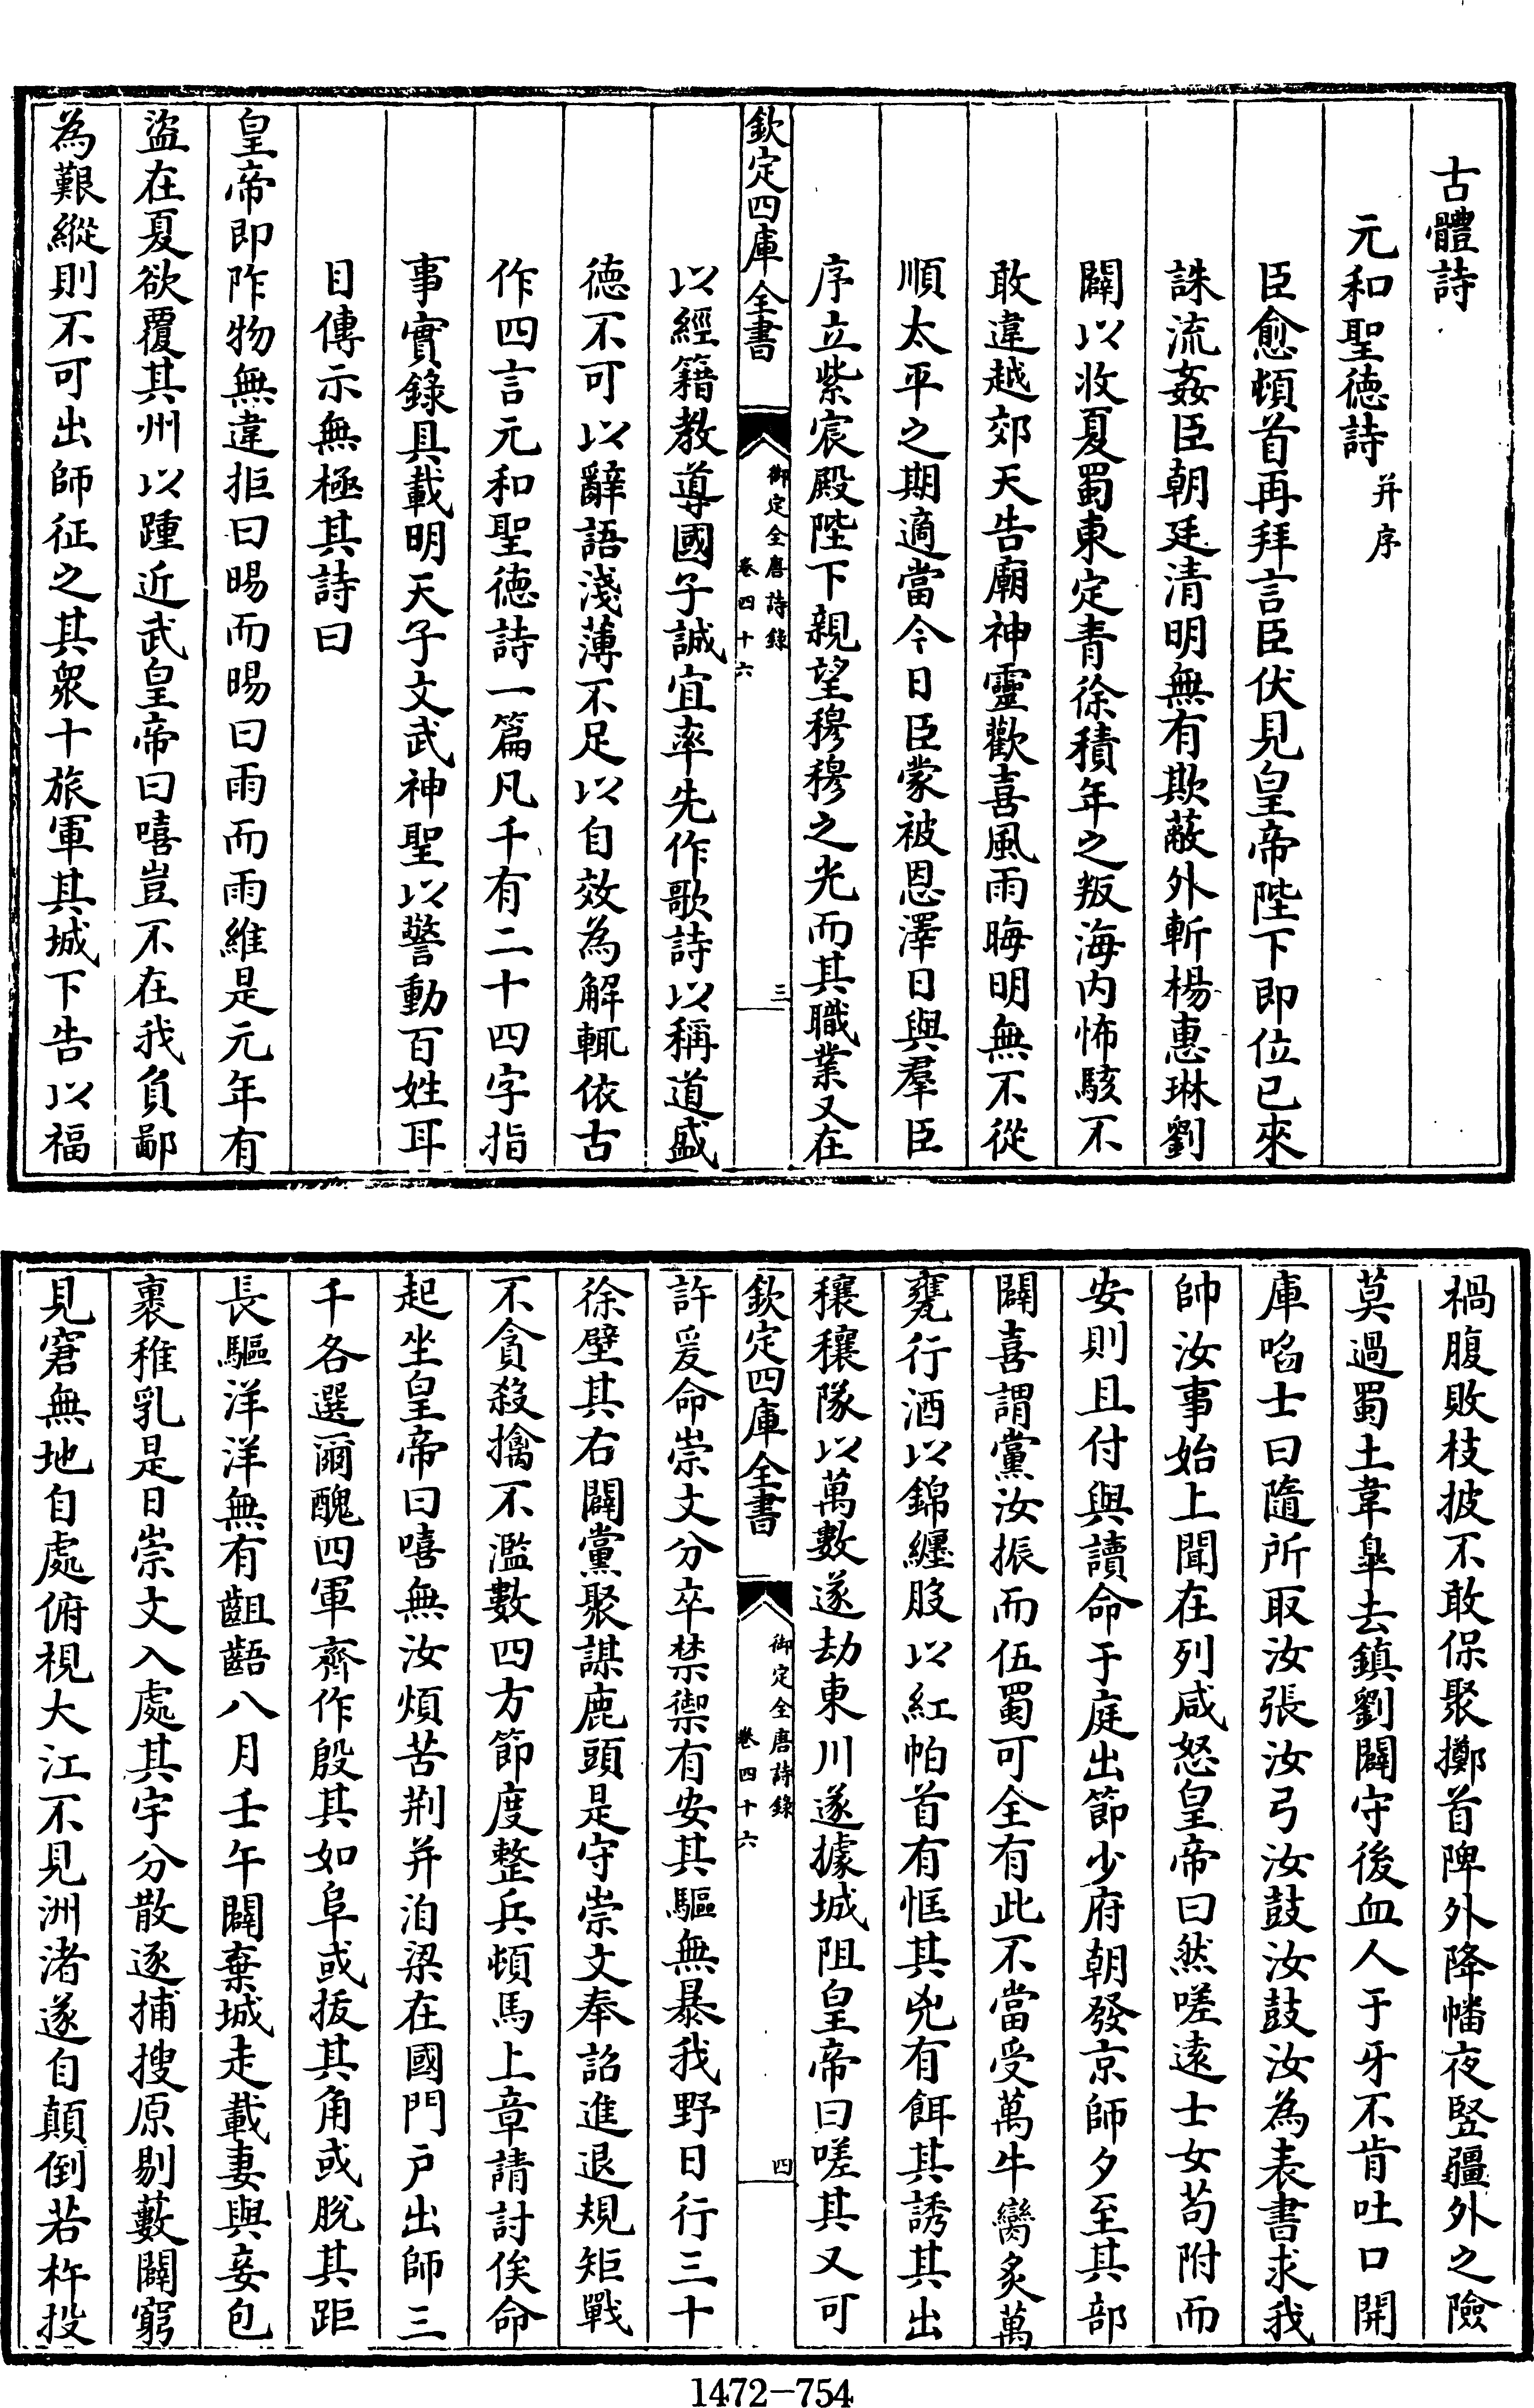 古體詩
元和聖德詩并序
臣愈頓首再拜言臣伏見皇帝陛下即位已來
誅流姦臣朝廷清明無有欺蔽外斬楊惠琳劉
闢以收夏蜀東定青徐積年之叛海内怖駭不
敢違越郊天告廟神靈歡喜風雨晦明無不從
順太平之期適當今日臣蒙被恩澤日與羣臣
序立紫宸殿陛下親望穆穆之光而其職業又在
欽定四庫全書
御定全唐詩錄
卷四十六
三
以經籍教導國子誠宜率先作歌詩以稱道盛
德不可以辭語淺薄不足以自效為解輒依古
作四言元和聖德詩一篇凡千有二十四字指
事實錄具載明天子文武神聖以警動百姓耳
目傳示無極其詩曰
皇帝即阼物無違拒曰暘而暘曰雨而雨維是元年有
盜在夏欲覆其州以踵近武皇帝曰嘻豈不在我負鄙
為艱縱則不可出師征之其衆十旅軍其城下告以福
禍腹敗枝披不敢保聚擲首陴外降幡夜豎疆外之險
莫過蜀土韋臯去鎮劉闢守後血人于牙不肯吐口開
庫啗士曰隨所取汝張汝弓汝鼓汝鼓汝為表書求我
帥汝事始上聞在列咸怒皇帝曰然嗟逺士女苟附而
安則且付與讀命于庭出節少府朝發京師夕至其部
闢喜謂黨汝振而伍蜀可全有此不當受萬牛臠炙萬
甕行酒以錦纒股以紅帕首有恇其兇有餌其誘其出
穰穰隊以萬數遂劫東川遂據城阻皇帝曰嗟其又可
欽定四庫全書
御定全唐詩錄
卷四十六
四
許爰命崇文分卒禁禦有安其驅無暴我野日行三十
徐壁其右闢黨聚謀鹿頭是守崇文奉詔進退規矩戰
不貪殺擒不濫數四方節度整兵頓馬上章請討俟命
起坐皇帝曰嘻無汝煩苦荆并洎梁在國門户出師三
千各選爾醜四軍齊作殷其如阜或拔其角或脫其距
長驅洋洋無有齟齬八月壬午闢棄城走載妻與妾包
裹稚乳是日崇文入處其宇分散逐捕搜原剔藪闢窮
見窘無地自處俯視大江不見洲渚遂自顛倒若杵投
1472-754